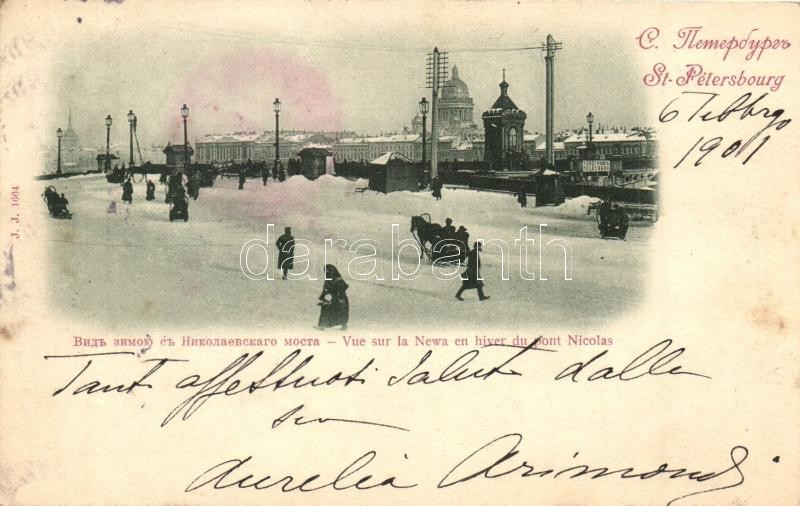 С. Петербургъ
St-Pétersbourg
6 Febbr
1901
J. J. 1664
darabanth
Видъ зимою съ Николаевскаго моста – Vue sur la Newa en hiver du pont Nicolas
Tant affettuosi saluti dalla
sua
Aurelia Arimondi